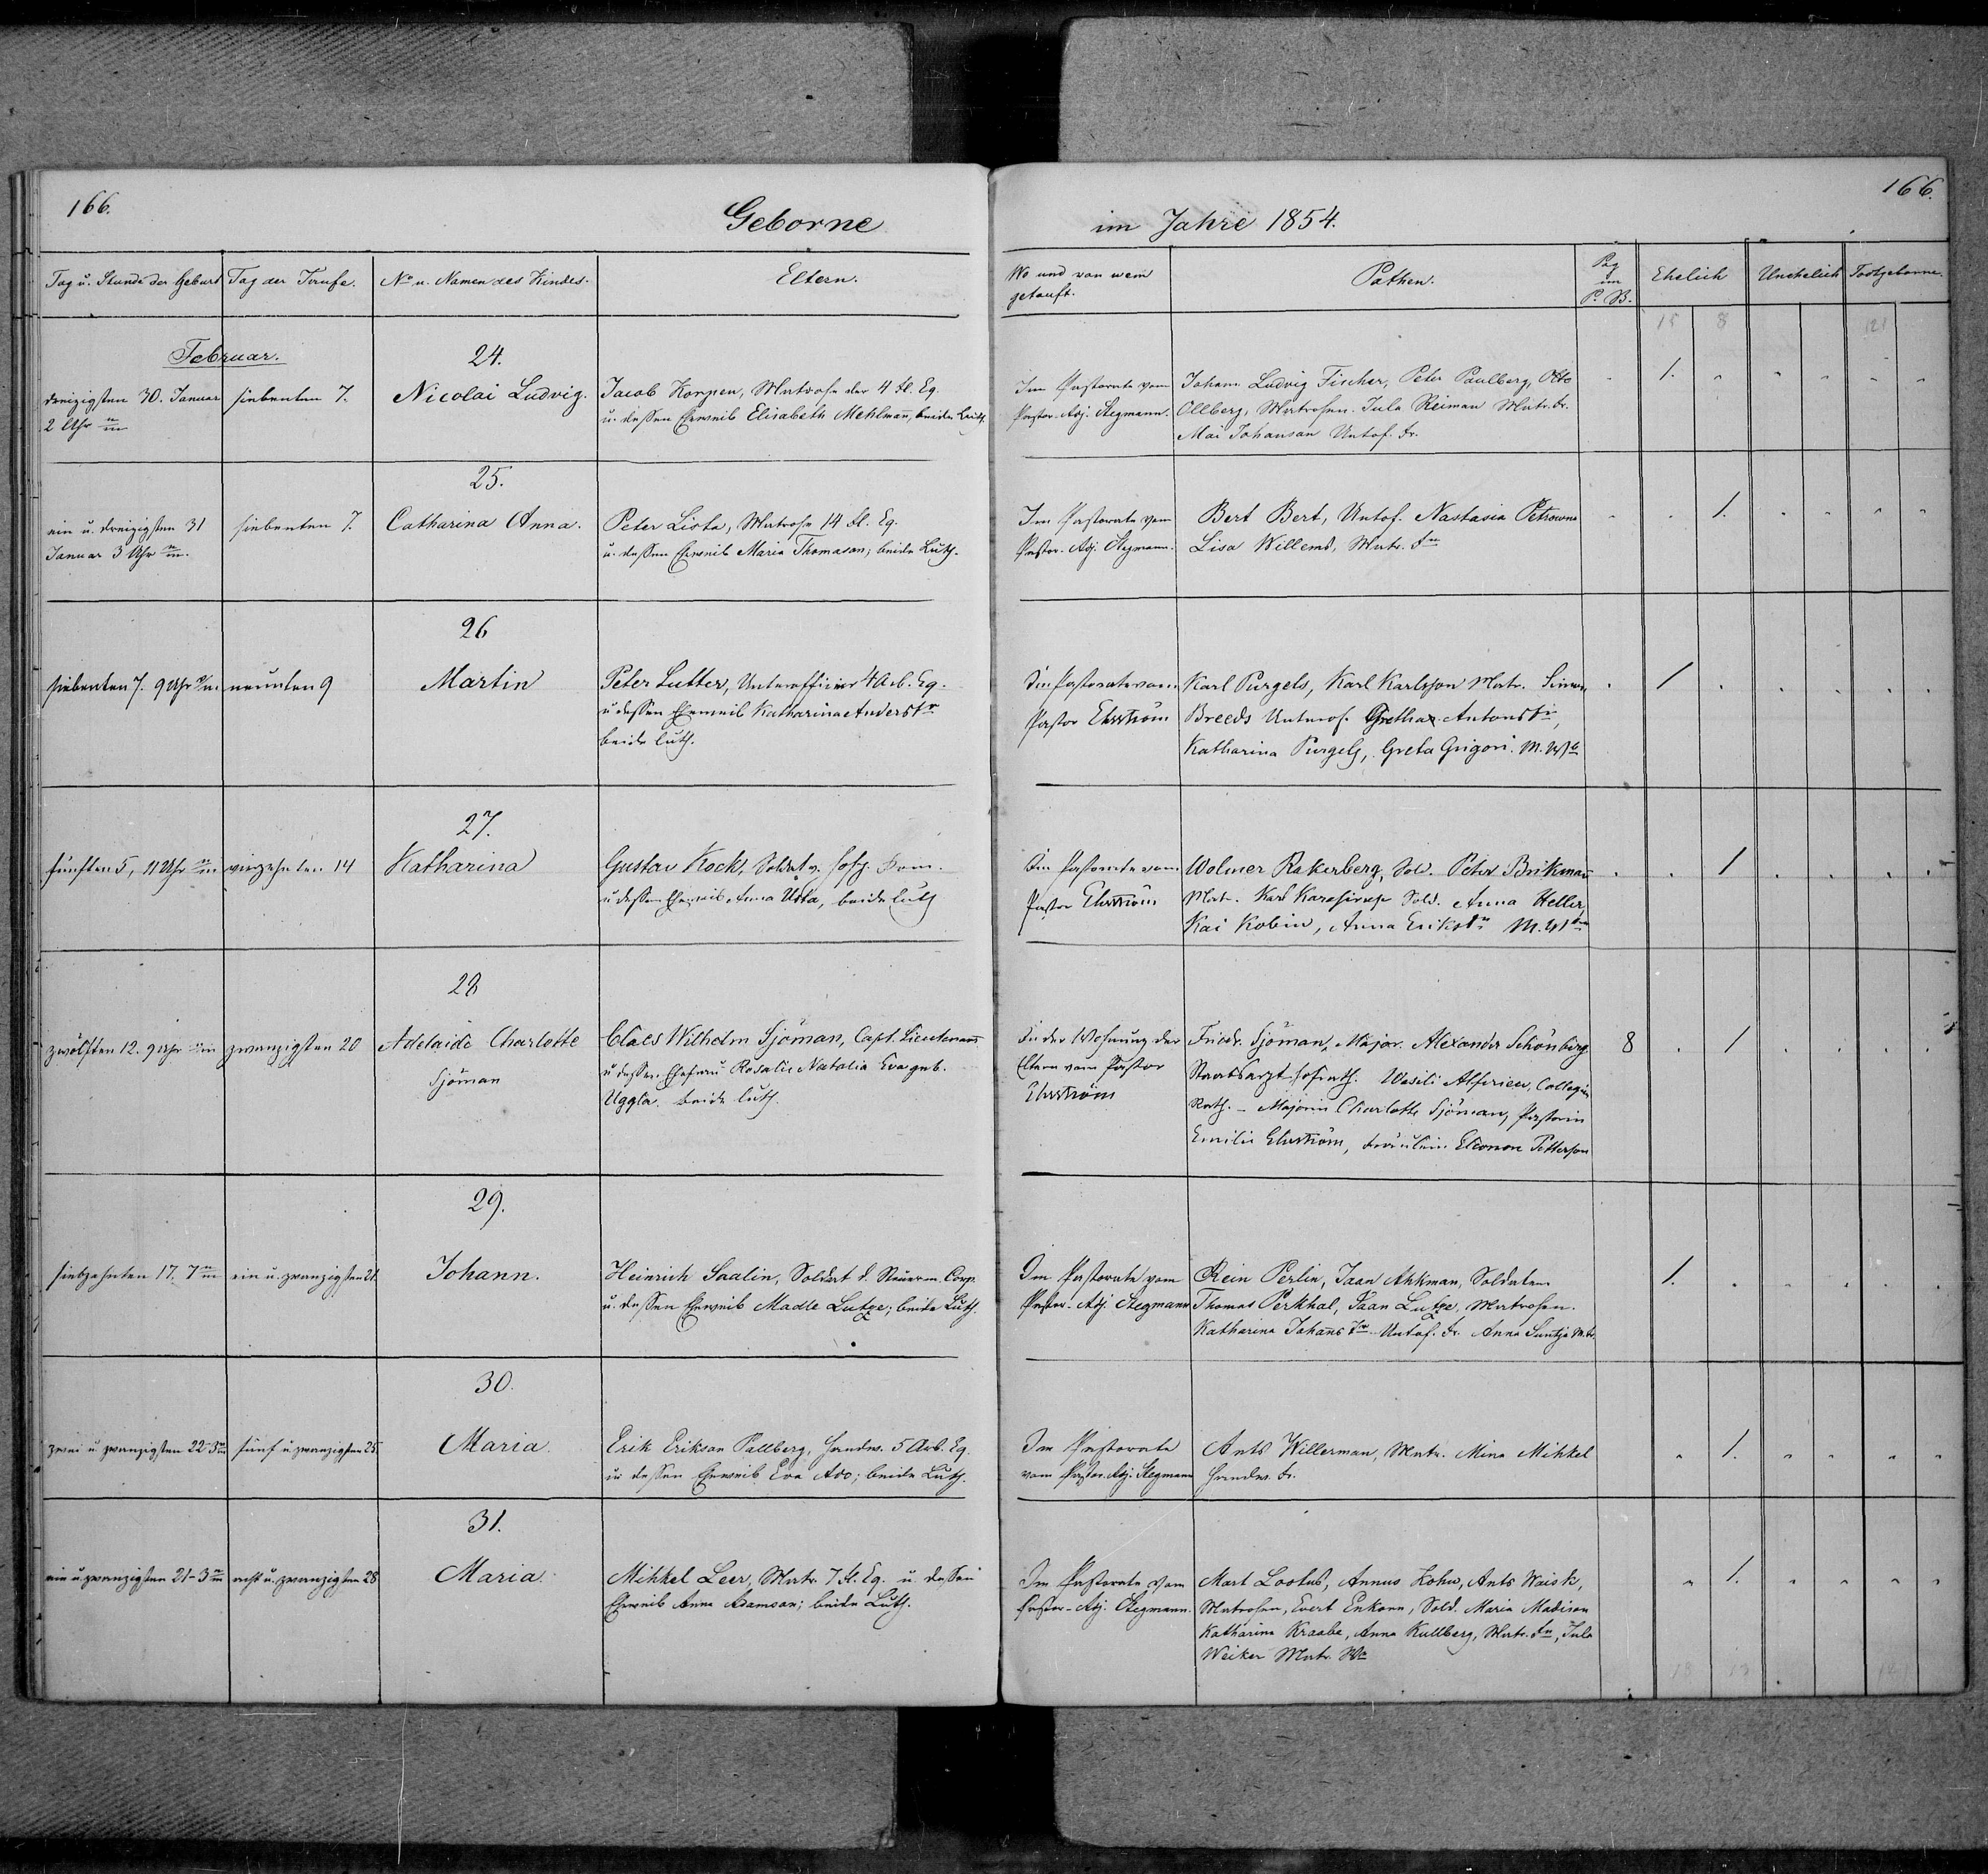 166.
Geborne
im Jahre 1854.
166.
Tag u. Stunde der Geburt
Tag der Taufe.
No u. Namen des Kindes.
Eltern.
Wo und von wem
getauft.
Pathen.
Pag
im
P. B.
Ehelich
Unehelich
Todtgeborne.
15 8 121
Februar.
24.
dreizigsten 30. Januar
2 Uhr
siebenten 7.
Nicolai Ludvig.
Jacob Koppen, Matrose der 4 Fl. Eq.
u. dessen Eheweib Elisabeth Mehlman, beide Luth.
Im Pastorate vom
Pastor-Adj. Stegmann.
Johann Ludvig Fischer, Peter Paulberg, Otto
Ollberg, Matrosen. Jula Reiman Matr. Fr.
Mai Johanson Untof. Fr.
1.
25.
ein u. dreizigsten 31
Januar 3 Uhr
siebenten 7.
Catharina Anna.
Peter Lista, Matrose 14 Fl. Eq.
u. dessen Eheweib Maria Thomason; beide Luth.
Im Pastorate vom
Pastor-Adj. Stegmann.
Bert Bert, Untof. Nastasia Petrowna
Lisa Willems, Matr. Fr
1.
26
siebenten 7. 9 Uhr
neunten 9
Martin
Peter Lutter, Unterofficier 4 Arb. Eq.
u dessen Eheweib Katharina Anders
beide luth.
Im Pastorate vom
Pastor Ehrström
Karl Purgels, Karl Karlsson Matr.
Breeds Unterof. Gretha Antons
Katharina Purgels, Greta Grigori. M.
1
27.
fünften 5, 11 Uhr
vierzehnten 14
Katharina
Gustav Kock, Soldat
u dessen Eheweib Anna Usta, beide luth
Im Pastorate vom
Pastor Ehrström
Wolmer Rakerberg, Sold. Peter Brikman
Matr. Karl Sold. Anna Heller
Kai Kobin, Anna Eriks M.
1
28
zwölften 12. 9 Uhr
zwanzigsten 20
Adelaide Charlotte
Sjöman
Claes Wilhelm Sjöman, Capt. Lieutenant
u dessen Ehefrau Rosalie Natalia Eva geb.
Uggla. beide luth.
In der Wohnung der
Eltern vom Pastor
Ehrström
Friedr. Sjöman, Major. Alexander Schönberg
Staabsarzt Hofrath. Wasili Alferiew, Collegien
Rath. - Majorin Charlotte Sjöman, Pastorin
Emilie Ehrström, Fräulein Eleonore Petterson
8
1
29.
siebzehnten 17. 7
ein u. zwanzigsten 21.
Johann.
Heinrich Saalin, Soldat d. Steuerm. Corp.
u. dessen Eheweib Madle Lutze; beide Luth.
Im Pastorate vom
Pastor-Adj. Stegmann
Rein Perlin, Jaan Ahkman, Soldaten
Thomas Perkhal, Jaan Lutze, Matrosen.
Katharina Johans Untof. Fr. Anna Suntja M. Fr.
1.
30.
zwei u zwanzigsten 22 3
fünf u zwanzigsten 25
Maria.
Erik Erikson Pallberg, Handw. 5 Arb. Eq.
u dessen Eheweib Eva Ado; beide Luth.
Im Pastorate
vom Pastor Adj. Stegmann
Ants Willerman, Matr. Mina Mihkel
Handw. Fr.
1.
31.
ein u zwanzigsten 21 - 3
acht u. zwanzigsten 28
Maria.
Mihkel Leer, Matr. 7 Fl. Eq. u. dessen
Eheweib Anna Adamson; beide Luth.
Im Pastorate vom
Pastor-Adj. Stegmann.
Mart Lootus, Annus Kohn, Ants Waisk,
Matrosen, Evert Enkonn, Sold. Maria Madison
Katharina Kraabe, Anna Kullberg, Matr. Fr, Jula
Weiker Matr. We
1.